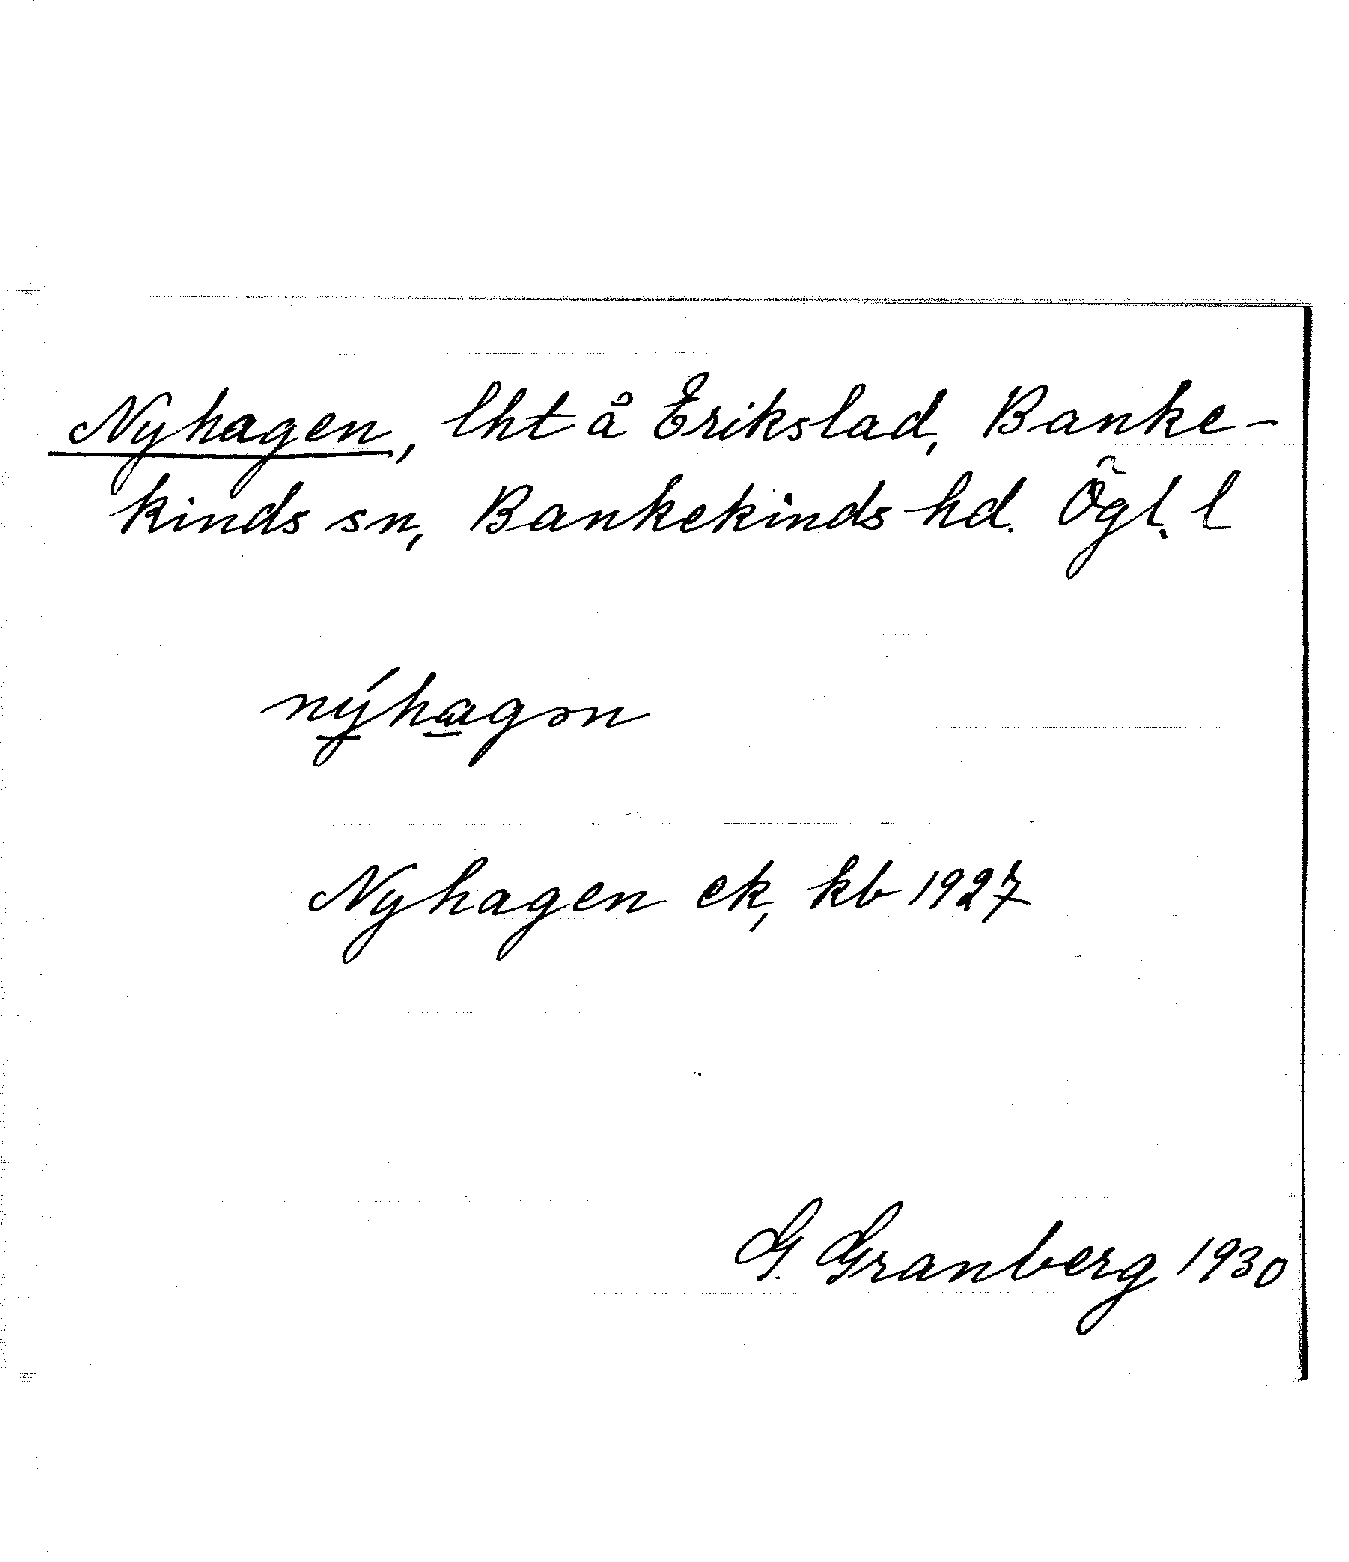 Nyhagen, lht å Erikslad, Banke-
kinds sn, Bankekinds hd. Ögl. l
nýhagən
Nyhagen ek, kb 1927
G. Granberg 1930